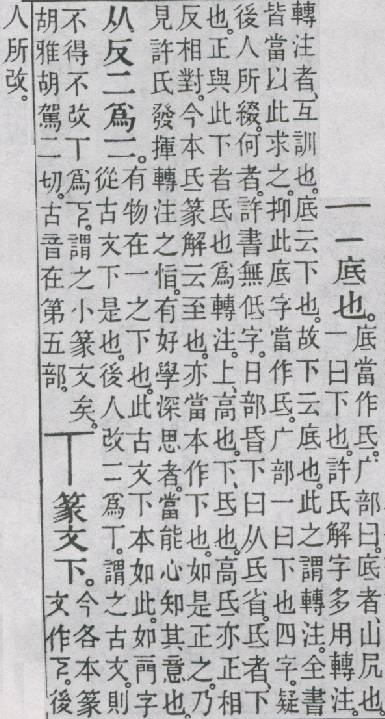 二底也。
底當作氐。广部曰。底者、山凥也。
一曰下也。許氏解字多用轉注。
轉注者、互訓也。底云下也。故下云底也。此之謂轉注。全書
皆當以此求之。抑此底字當作氐。广部一曰下也四字。疑
後人所綴。何者。許書無低字。日部昏下曰从氐省。氐者、下
也。正與此下者氐也爲轉注。上、高也。下、氐也。高氐亦正相
反相對。今本氐篆解云至也。亦當本作下也。如是正之。乃
見許氏發揮轉注之恉。有好學深思者。當能心知其意也。
从反二爲二。
有物在一之下也。此古文下本如此。如字
從古文下是也。後人改二爲丅。謂之古文。則
不得不改丅爲𠄟。謂之小篆文矣。
胡雅胡駕二切。古音在第五部。
丅篆文下。
今各本篆
文作𠄟。後
人所改。